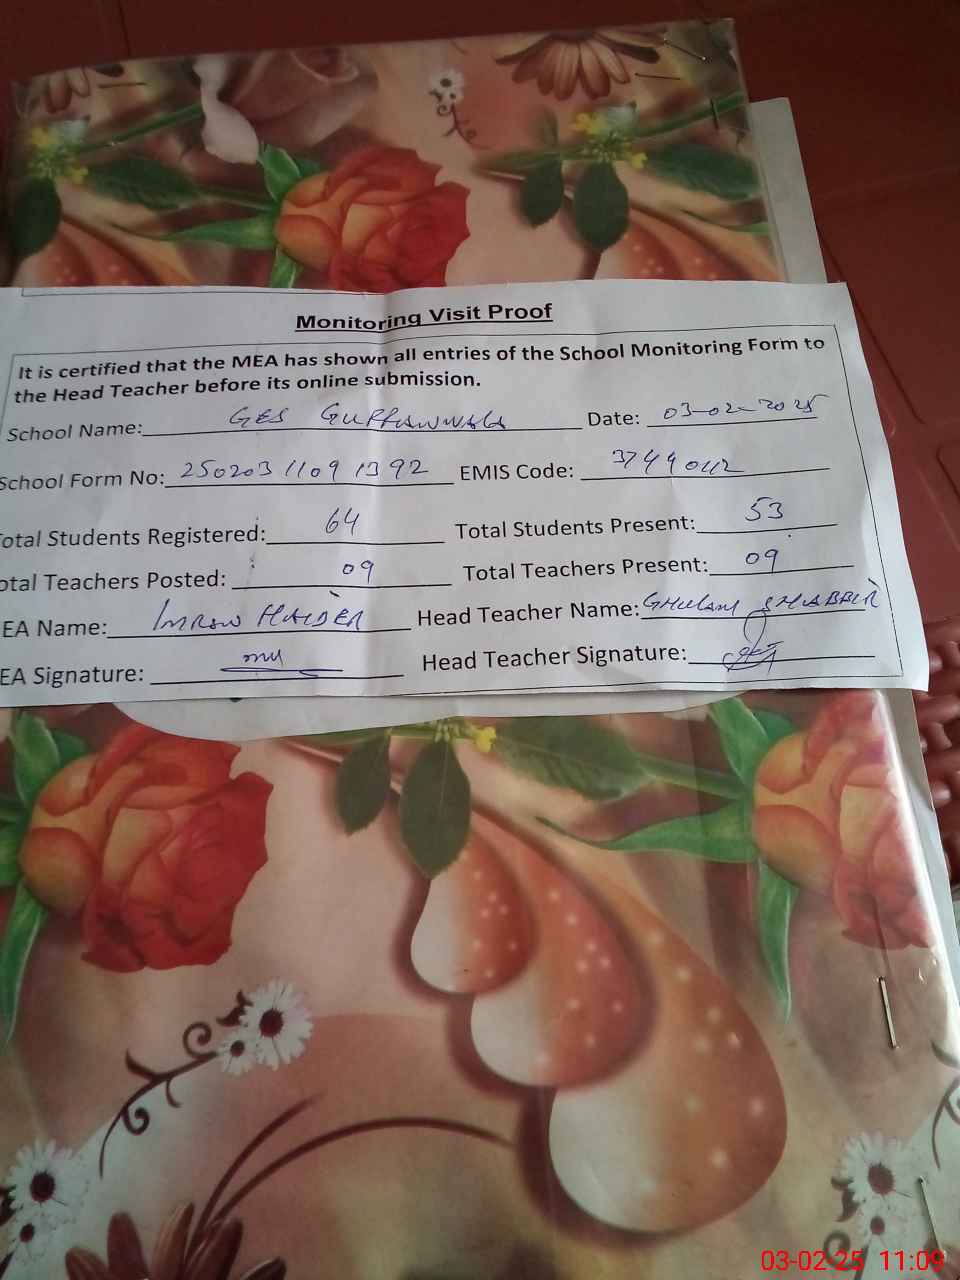 Monitoring Visit Proof
It is certified that the MEA has shown all entries of the School Monitoring Form to
the Head Teacher before its online submission.
School Name: GES Date: 03-02-2025
School Form No: 250203 1109 1392 EMIS Code:
otal Students Registered: 64 Total Students Present: 53
otal Teachers Posted: 09 Total Teachers Present: 09
EA Name: IMRAN HAIDER Head Teacher Name: GHULAM SHABBIR
EA Signature: Head Teacher Signature:
03-02-25 11:09